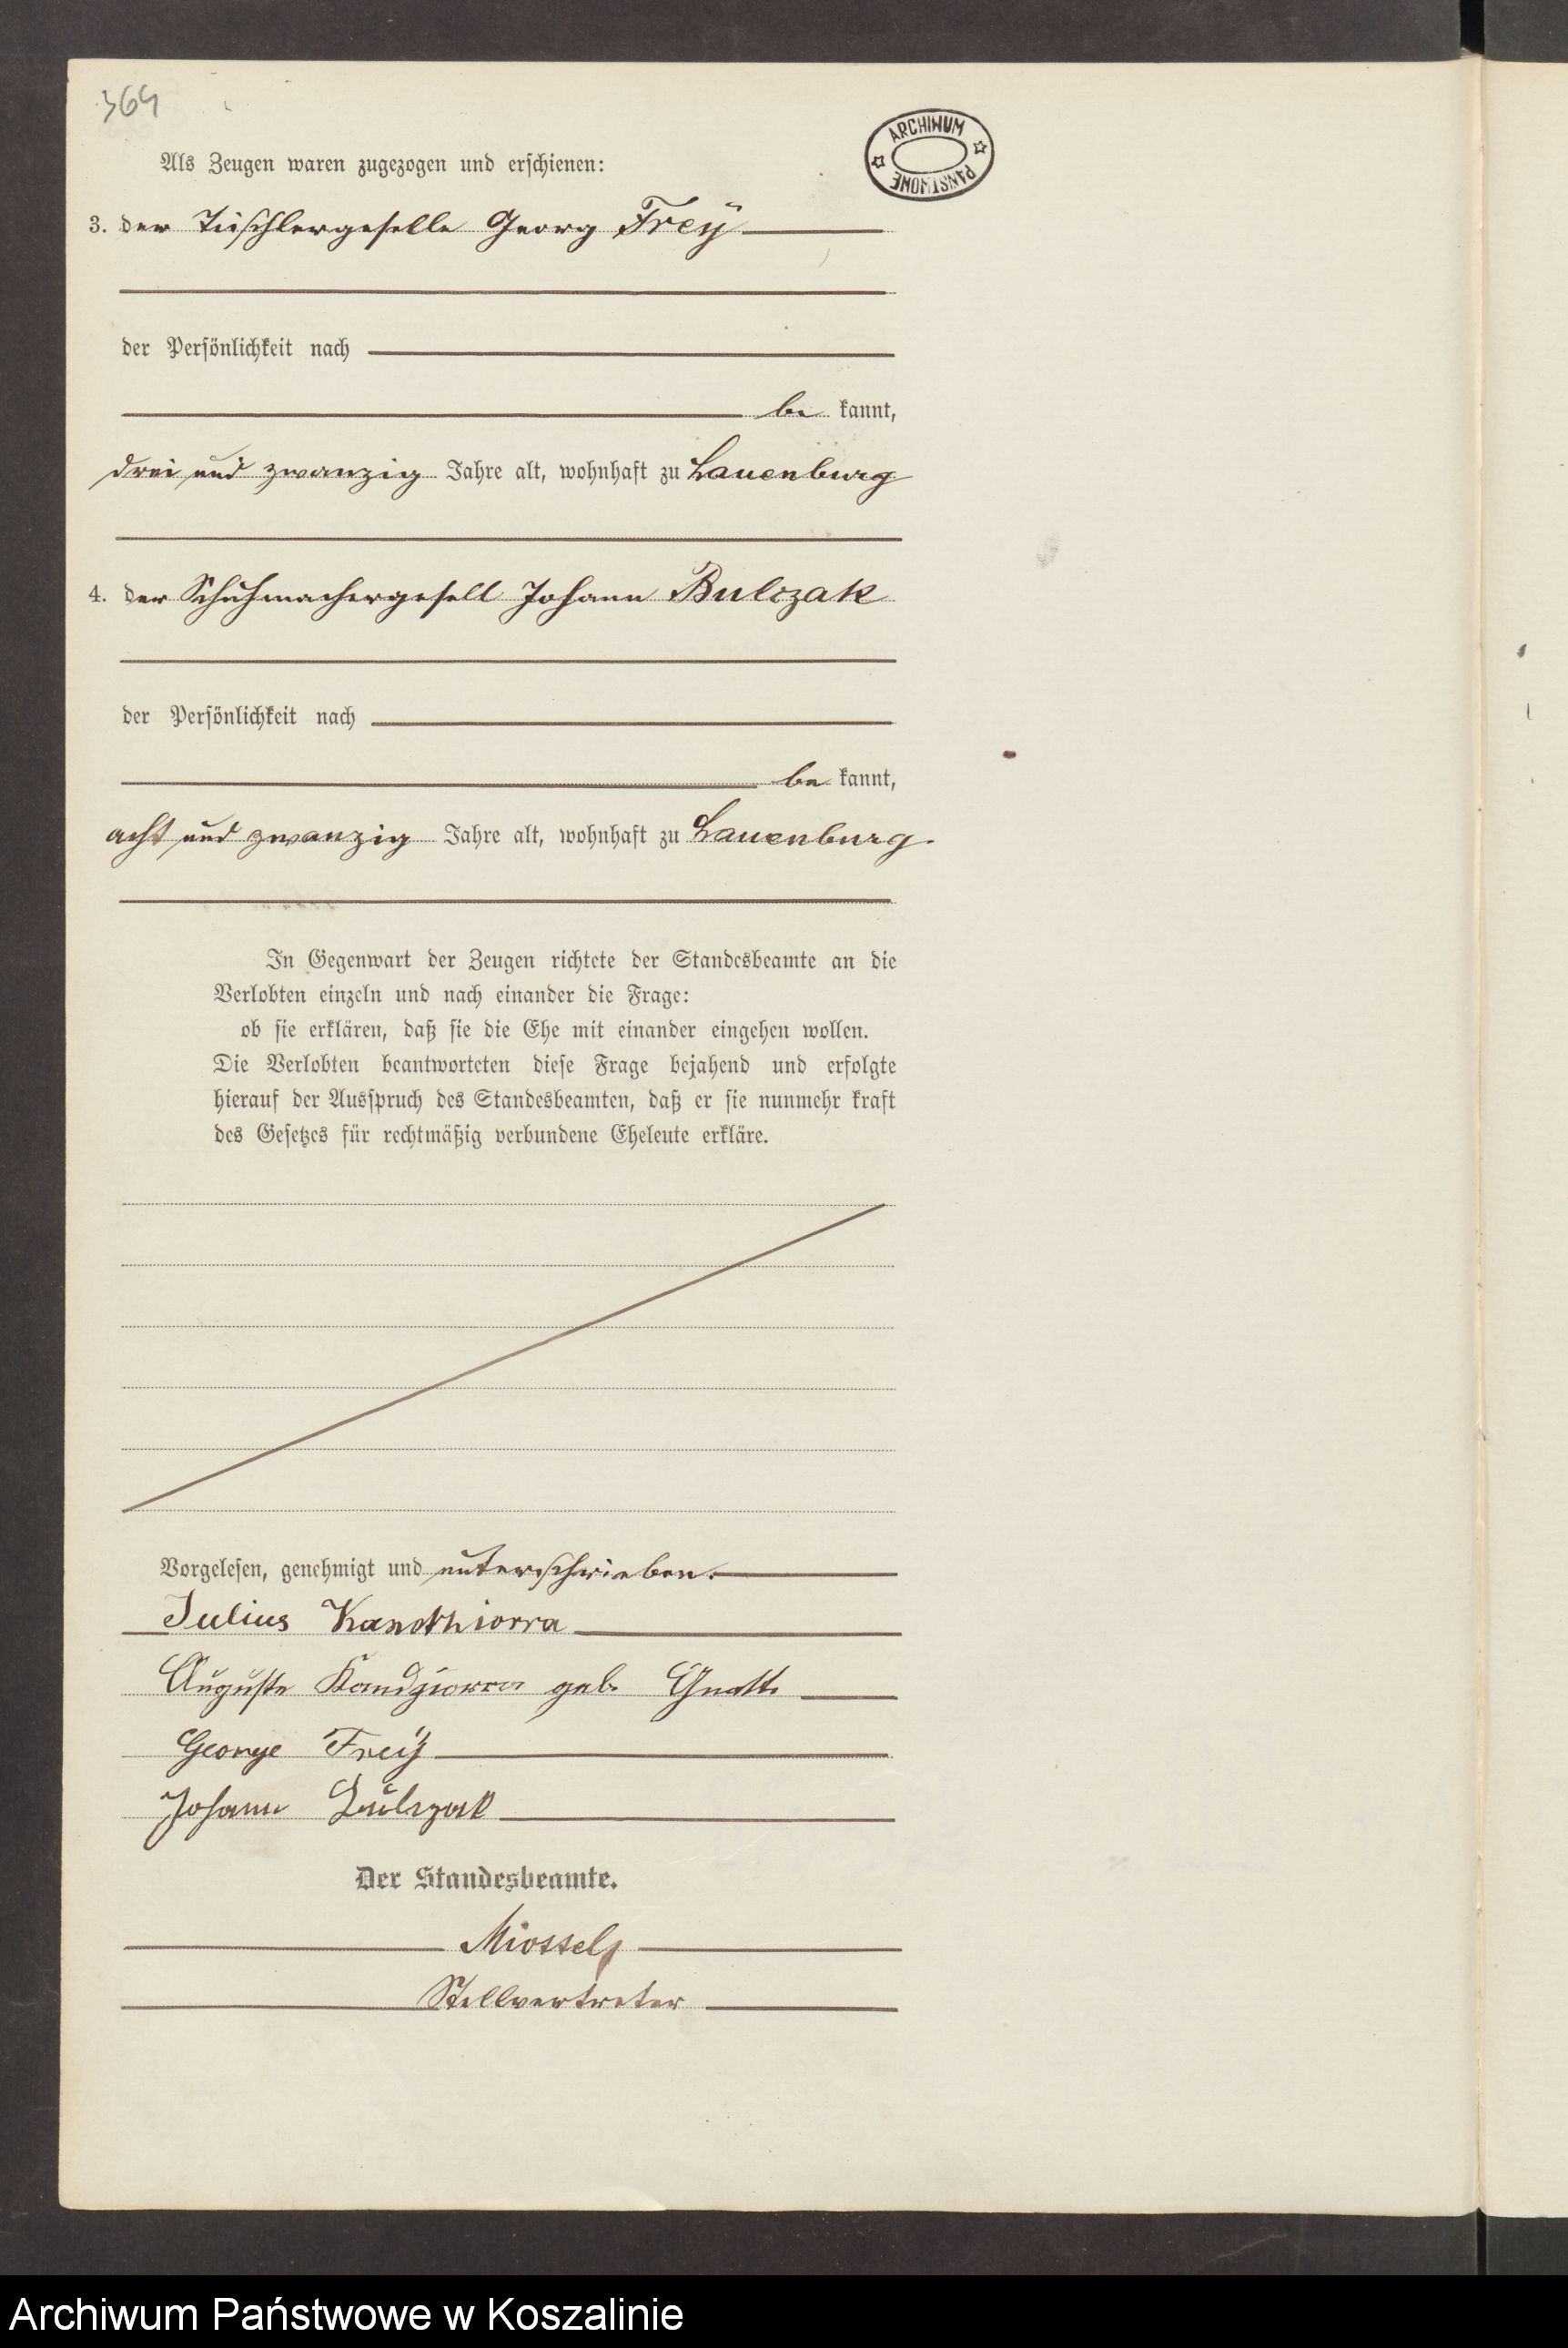 364
ARCHIWUM PAŃSTWOWE
Als Zeugen waren zugezogen und erschienen:
3. der Tischlergeselle Georg Frey
der Persönlichkeit nach
be kannt,
drei und zwanzig Jahre alt, wohnhaft zu Lauenburg
4. der Schuhmachergesell Johann Bulczak
der Persönlichkeit nach
be kannt,
acht und zwanzig Jahre alt, wohnhaft zu Lauenburg.
In Gegenwart der Zeugen richtete der Standesbeamte an die
Verlobten einzeln und nach einander die Frage:
ob sie erklären, daß sie die Ehe mit einander eingehen wollen.
Die Verlobten beantworteten diese Frage bejahend und erfolgte
hierauf der Ausspruch des Standesbeamten, daß er sie nunmehr kraft
des Gesetzes für rechtmäßig verbundene Eheleute erkläre.
Vorgelesen, genehmigt und unterschrieben.
Julius
Auguste Kandziorra geb.
George Frey
Johann Bulczak
Der Standesbeamte.
Stellvertreter
Archiwum Państwowe w Koszalinie